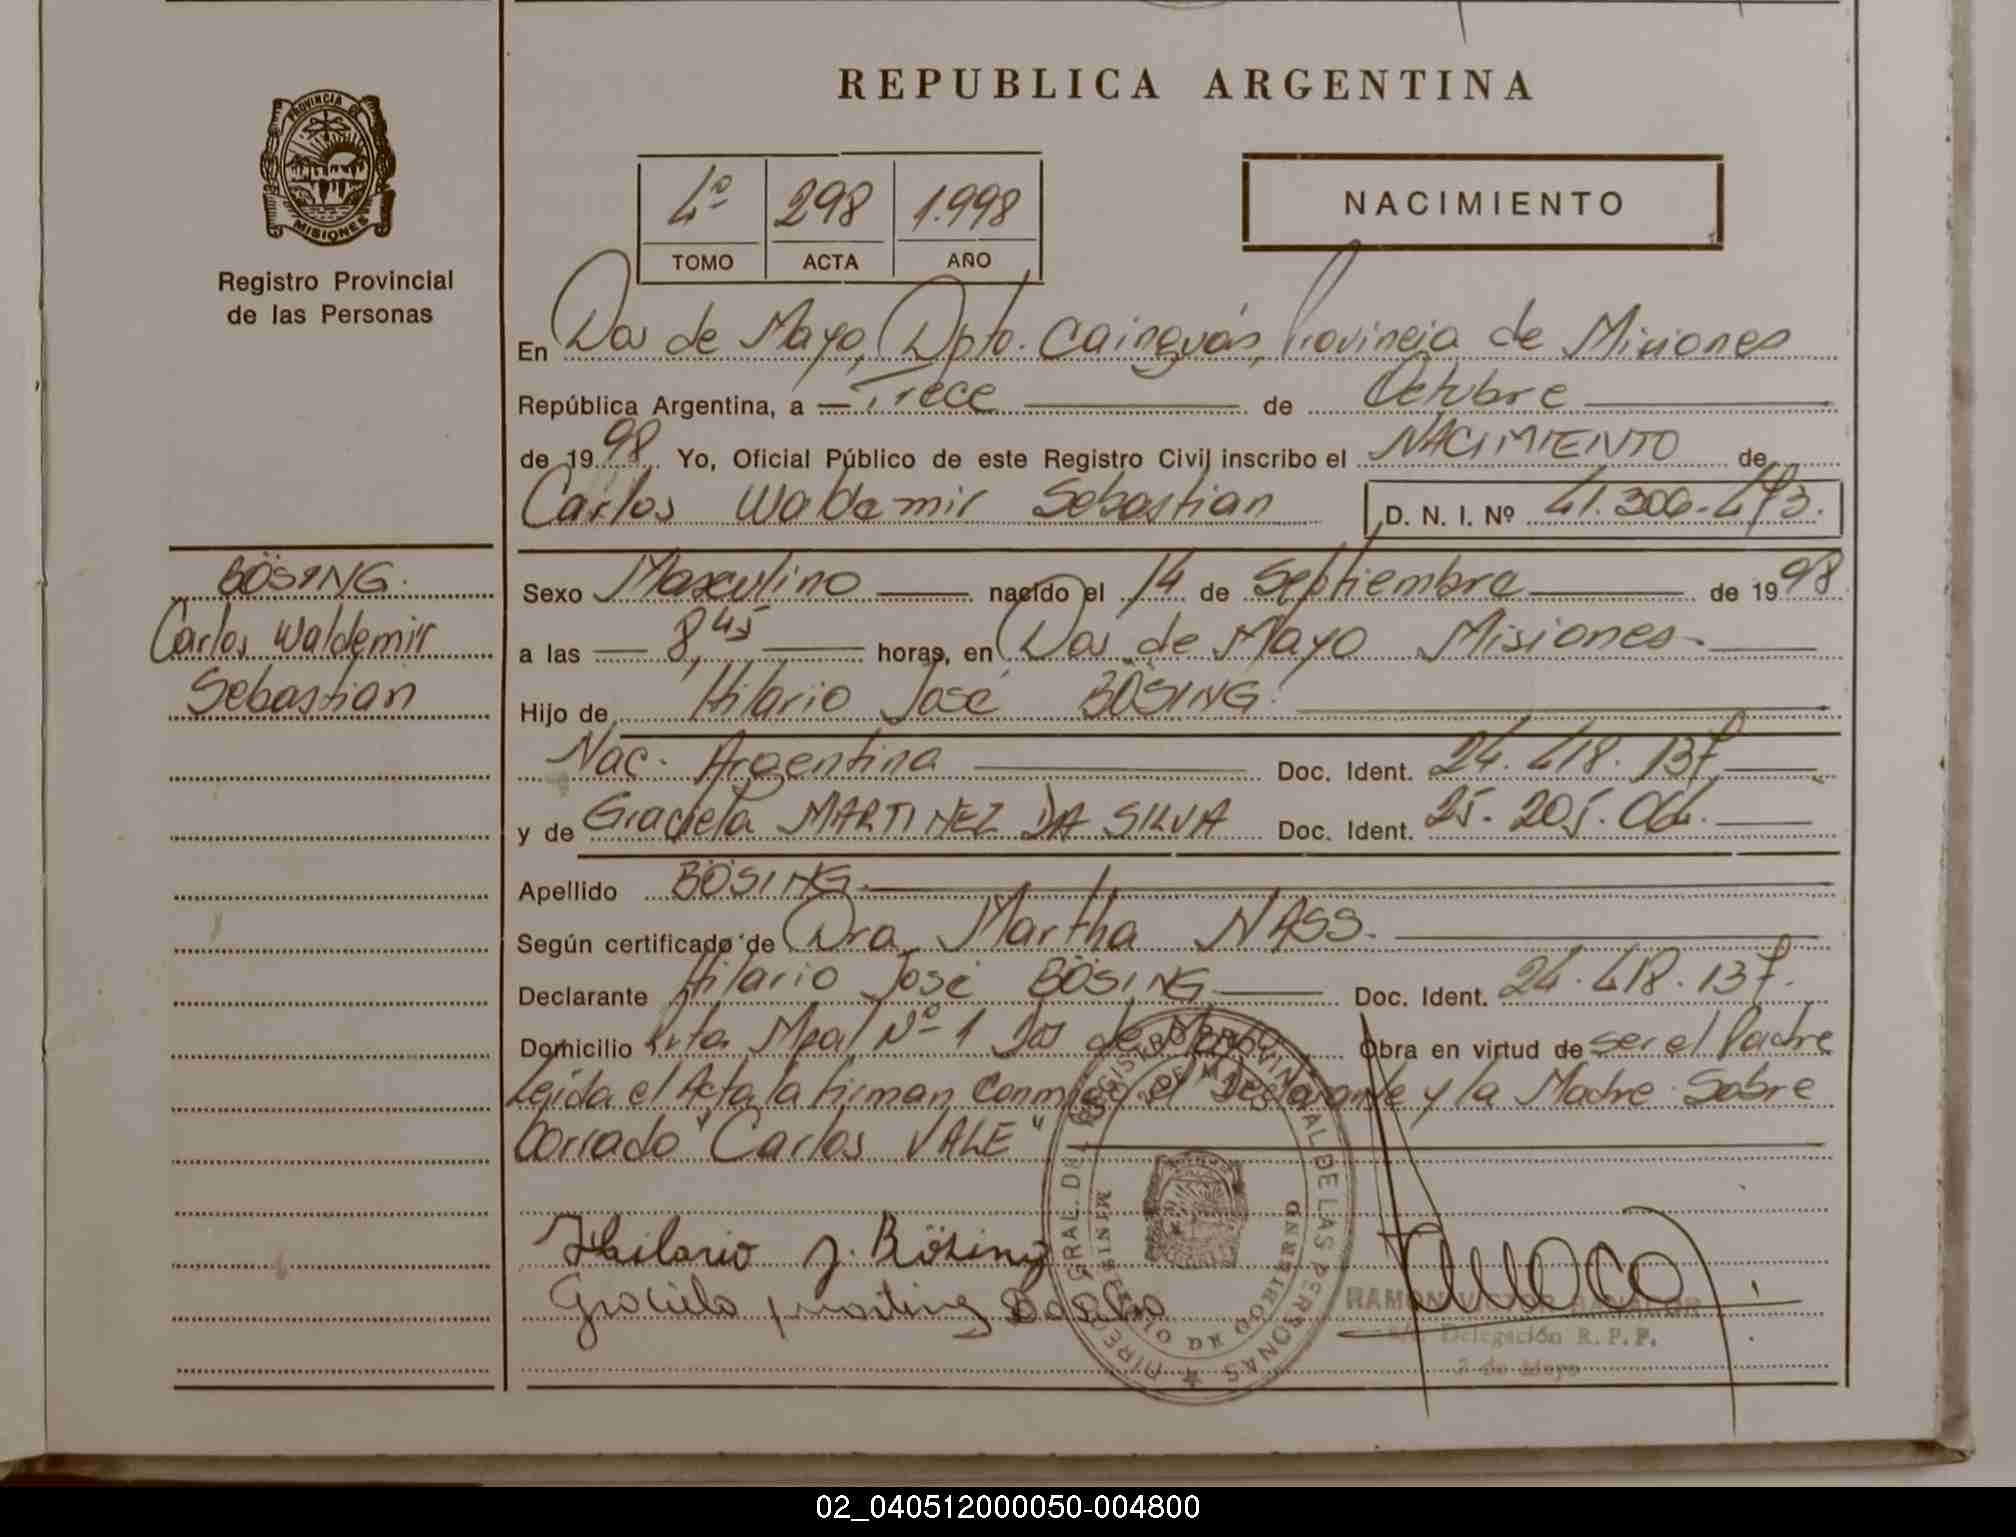 PROVINCIA DE
MISIONES
Registro Provincial
de las Personas
BÖSING.
Carlos Waldemir
Sebastian
REPUBLICA ARGENTINA
4º 298 1.998
TOMO ACTA AÑO
NACIMIENTO
En Dos de Mayo, Dpto. Cainguás, Provincia de Misiones
República Argentina, a Trece de Octubre
de 1998 Yo, Oficial Público de este Registro Civil inscribo el NACIMIENTO de
Carlos Waldemir Sebastian D. N. I. Nº 41.306.473.
Sexo Masculino nacido el 14 de Septiembre de 1998
a las 8,45 horas, en Dos de Mayo Misiones
Hijo de Hilario José BÖSING.
Nac. Argentina Doc. Ident. 24.418.137
y de Graciela MARTINEZ DA SILVA Doc. Ident. 25.205.06
Apellido BÖSING
Según certificado de Dra. Martha NASS.
Declarante Hilario José BÖSING Doc. Ident. 24.418.137.
Domicilio Ruta Mpal Nº 1 Dos de Mayo Obra en virtud de ser el Padre
Leída el Acta la firman conmigo el Declarante y la Madre. Sobre
borrado "Carlos VALE"
Hilario J. Bösing
Graciela Da Silva
DIREC. GRAL. DEL REGISTRO PROVINCIAL DE LAS PERSONAS
2 DE MAYO
MINISTERIO DE GOBIERNO
RAMON VICTOR
Delegación R. P. P.
2 de Mayo
02_040512000050-004800